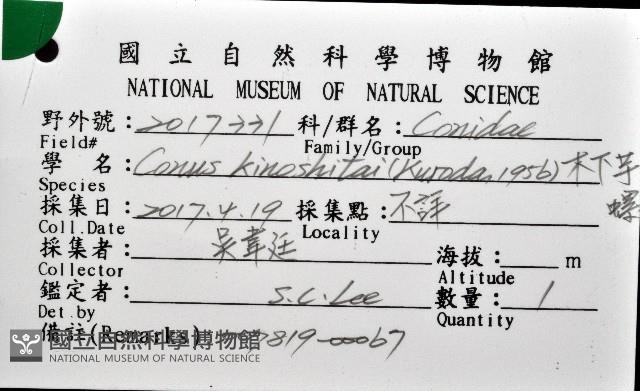 國立自然科學博物館
NATIONAL MUSEUM OF NATURAL SCIENCE
野外號: 科/群名: Conidae
Field# Family/Group
學 名: Conus kinoshitai (Kuroda, 1956) 木下芋螺
Species
採集日: 2017.4.19 採集點: 不詳
Coll.Date Locality
採集者: 吳韋廷 海拔: m
Collector Altitude
鑑定者: S.C.Lee 數量: 1
Det.by Quantity
備註(Remarks) 7819-00067
國立自然科學博物館
NATIONAL MUSEUM OF NATURAL SCIENCE